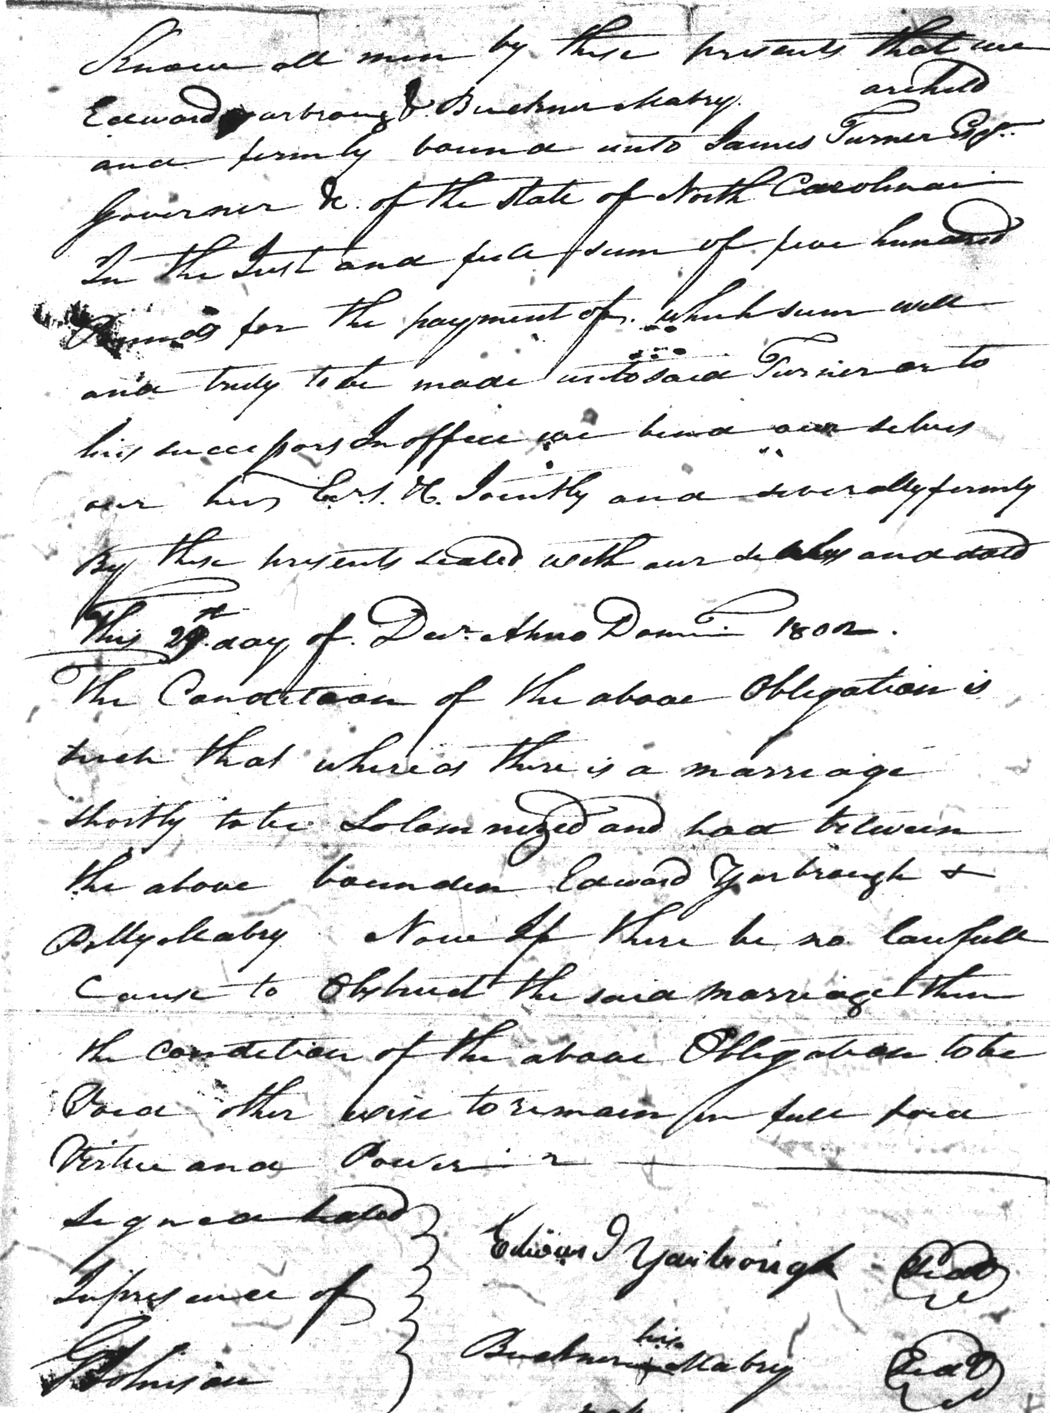 Know all men by these presents that we
Edward Yarbrough & Buckner Mabry. are held
and firmly bound unto James Turner Esqr.
Governer &c. of the State of North Carolina
In the Just and full sum of five hundred
Pounds for the payment of. which sum well
and truly to be made unto said Turner or to
his successors In office we bind our selves
our heirs Exrs. &c. Jointly and severally firmly
By these presents sealed with our seals and dated
This 29th day of Decr. Anno Domini 1802.
The Condition of the above Obligation is
such that whereas there is a marriage
shortly to be Solemnized and had between
the above bounden Edward Yarbrough &
Polly Mabry Now If there be no lawfull
Cause to Obstruct the said marriage then
the condition of the above Obligation to be
Void other wise to remain in full force
Virtue and Power
Signed Sealed
Edward Yarbrough Seal
In presence of
his
Buckner Mabry Seal
Johnson